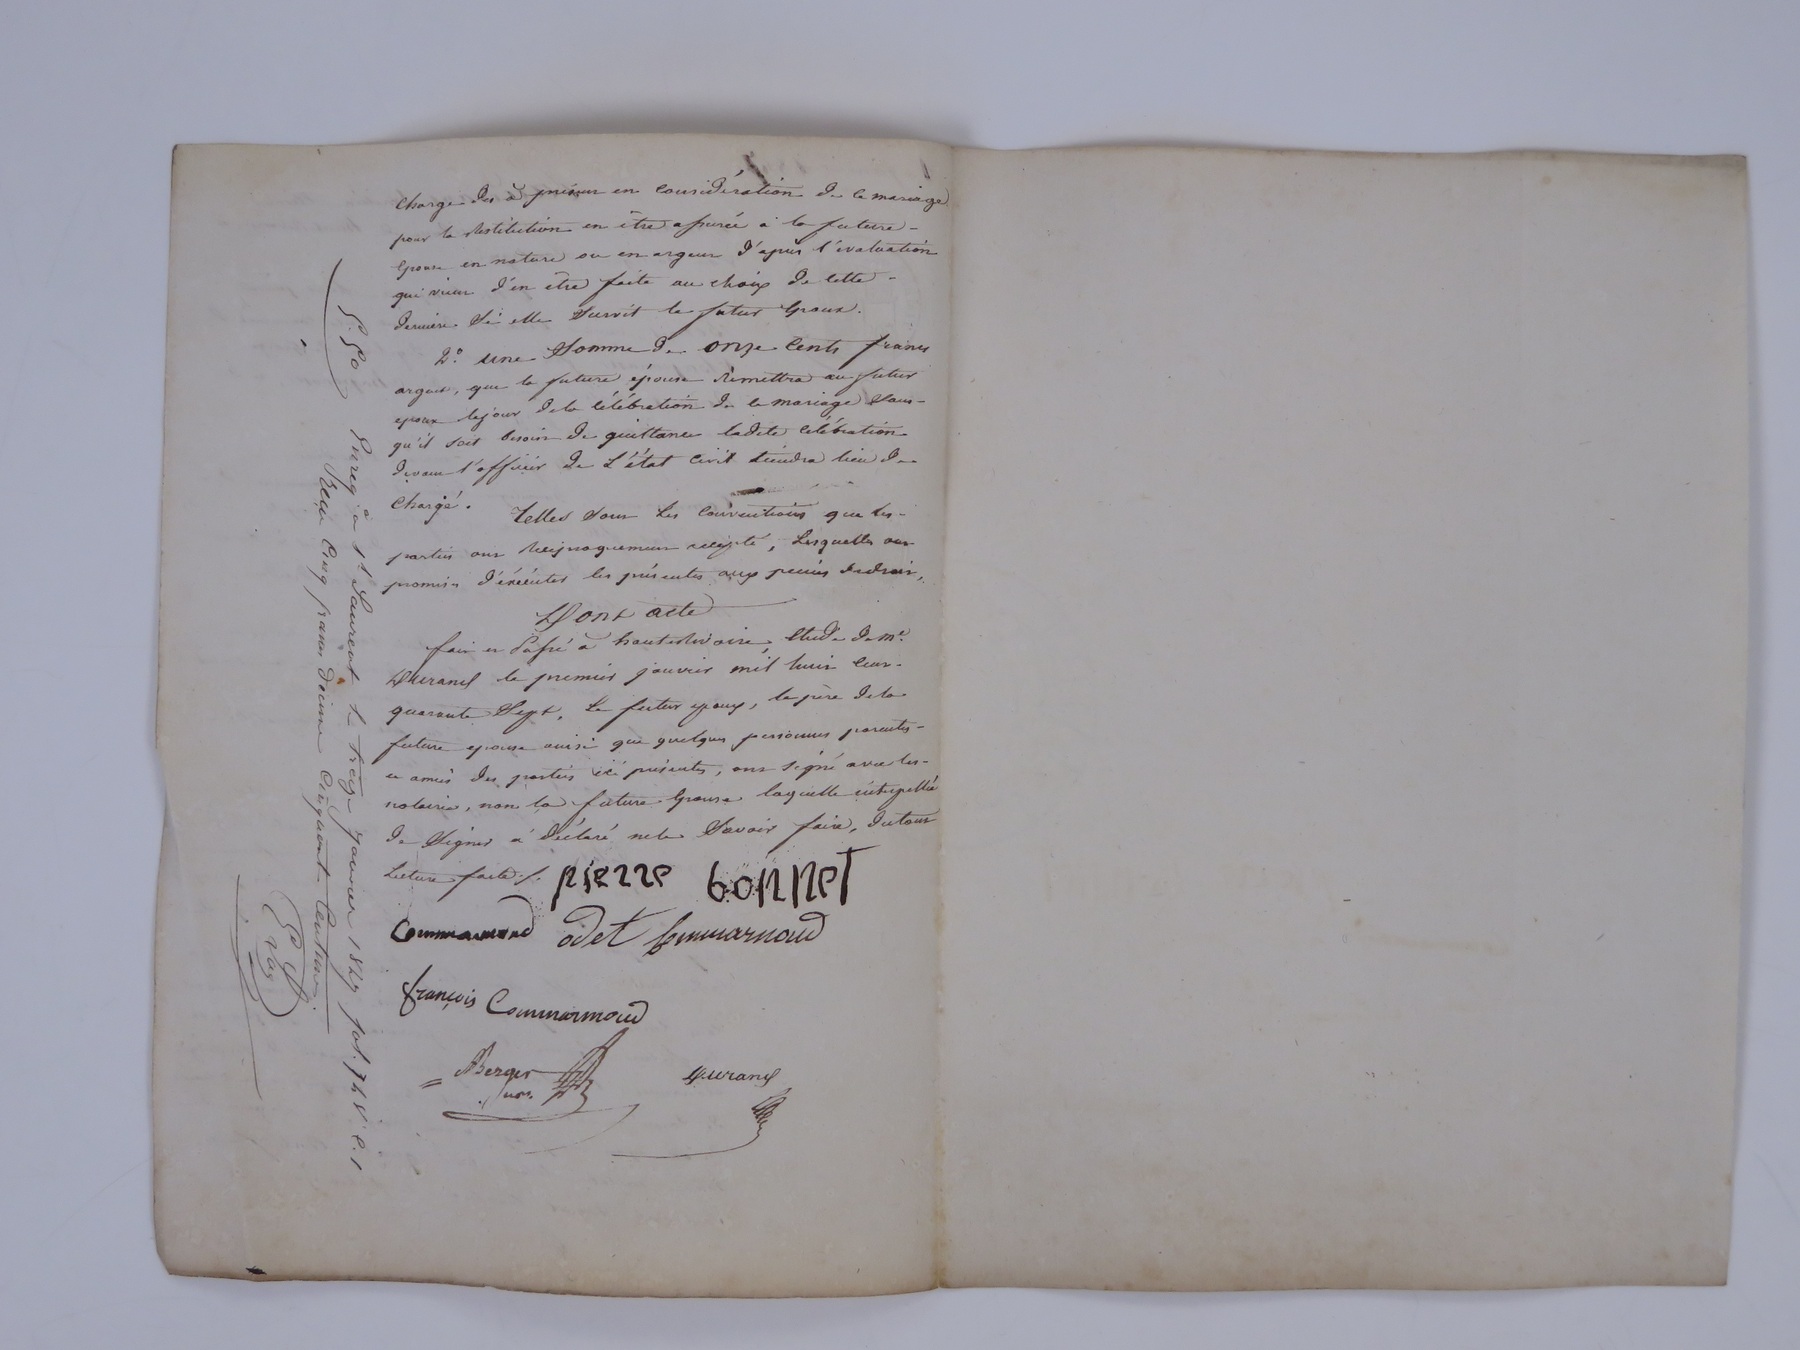 charge dès à présent en considération de ce mariage
pour la restitution en être assurée à la future
épouse en nature ou en argent d'après l'évaluation
qui vient d'en être faite au choix de cette
dernière. Si elle survit le futur époux.
2.° une somme de onze cents francs
argent, que la future épouse remettra au futur
epoux le jour de la célébration de ce mariage sans
qu'il soit besoin de quittance ladite célébration
devant l'officier de L'état civil tiendra lieu de
charge.
Telles sont les conventions que les
parties ont réciproquement accepté, lesquelles ont
promis d'éxécuter les présentes aux peines de droit,
Dont acte
fait et passé à hauterivoire, étude de Me.
Durand le premier janvier mil huit cent
quarante sept, Le futur epoux, le père de la
future epouse ainsi que quelques personnes parentes
et amies des parties ici présentes, ont signé avec les
notaires, non la future épouse laquelle interpellée
de signer a déclaré ne le savoir faire, du tout
lecture faite ./.
pierre bonnet
Commarmond odet Commarmond
françois Commarmond
Berger
Durand
Enreg. à St Laurent le treize janvier 1847 fol. 74 V. c. 1
Reçu cinq francs décime cinquante centimes.